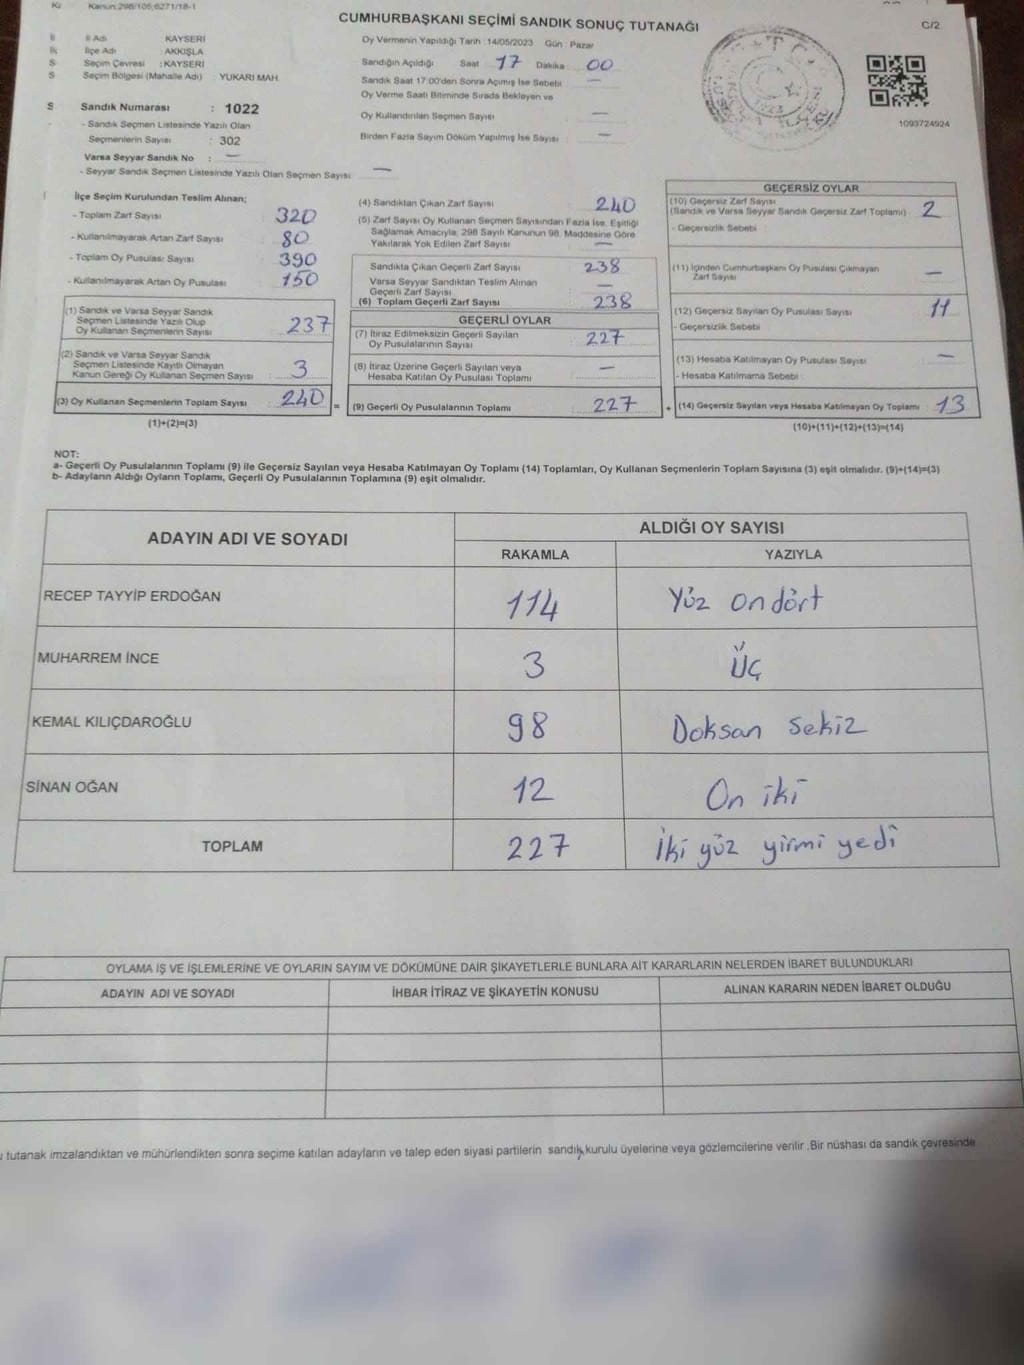 Kanun:298/105,6271/18-1
CUMHURBAŞKANI SEÇİMİ SANDIK SONUÇ TUTANAĞI
C/2
İl Adı KAYSERİ
İlçe Adı : AKKIŞLA
Seçim Çevresi : KAYSERİ
Seçim Bölgesi (Mahalle Adı) : YUKARI MAH.
Sandık Numarası : 1022
- Sandık Seçmen Listesinde Yazılı Olan
Seçmenlerin Sayısı : 302
Varsa Seyyar Sandık No : —
- Seyyar Sandık Seçmen Listesinde Yazılı Olan Seçmen Sayısı —
Oy Vermenin Yapıldığı Tarih :14/05/2023 Gün : Pazar
Sandığın Açıldığı Saat 17 Dakika 00
Sandık Saat 17:00'den Sonra Açımış İse Sebebi —
Oy Verme Saati Bitiminde Sırada Bekleyen ve
Oy Kullandırılan Seçmen Sayısı —
Birden Fazla Sayım Döküm Yapılmış İse Sayısı —
1093724924
İlçe Seçim Kurulundan Teslim Alınan;
- Toplam Zarf Sayısı 320
- Kullanılmayarak Artan Zarf Sayısı 80
- Toplam Oy Pusulası Sayısı 390
- Kullanılmayarak Artan Oy Pusulası 150
(1) Sandık ve Varsa Seyyar Sandık
Seçmen Listesinde Yazılı Olup
Oy Kullanan Seçmenlerin Sayısı 237
(2) Sandık ve Varsa Seyyar Sandık
Seçmen Listesinde Kayıtlı Olmayan
Kanun Gereği Oy Kullanan Seçmen Sayısı 3
(3) Oy Kullanan Seçmenlerin Toplam Sayısı 240 =
(1)+(2)=(3)
(4) Sandıktan Çıkan Zarf Sayısı 240
(5) Zarf Sayısı Oy Kullanan Seçmen Sayısından Fazla İse, Eşitliği
Sağlamak Amacıyla, 298 Sayılı Kanunun 98. Maddesine Göre
Yakılarak Yok Edilen Zarf Sayısı —
Sandıkta Çıkan Geçerli Zarf Sayısı 238
Varsa Seyyar Sandıktan Teslim Alınan
Geçerli Zarf Sayısı —
(6) Toplam Geçerli Zarf Sayısı 238
GEÇERLİ OYLAR
(7) İtiraz Edilmeksizin Geçerli Sayılan
Oy Pusulalarının Sayısı 227
(8) İtiraz Üzerine Geçerli Sayılan veya
Hesaba Katılan Oy Pusulası Toplamı —
(9) Geçerli Oy Pusulalarının Toplamı 227 +
GEÇERSİZ OYLAR
(10) Geçersiz Zarf Sayısı
(Sandık ve Varsa Seyyar Sandık Geçersiz Zarf Toplamı) 2
- Geçersizlik Sebebi :
(11) İçinden Cumhurbaşkanı Oy Pusulası Çıkmayan
Zarf Sayısı —
(12) Geçersiz Sayılan Oy Pusulası Sayısı 11
- Geçersizlik Sebebi:
(13) Hesaba Katılmayan Oy Pusulası Sayısı —
- Hesaba Katılmama Sebebi :
(14) Geçersiz Sayılan veya Hesaba Katılmayan Oy Toplamı 13
(10)+(11)+(12)+(13)=(14)
NOT:
a- Geçerli Oy Pusulalarının Toplamı (9) ile Geçersiz Sayılan veya Hesaba Katılmayan Oy Toplamı (14) Toplamları, Oy Kullanan Seçmenlerin Toplam Sayısına (3) eşit olmalıdır. (9)+(14)=(3)
b- Adayların Aldığı Oyların Toplamı, Geçerli Oy Pusulalarının Toplamına (9) eşit olmalıdır.
ADAYIN ADI VE SOYADI
ALDIĞI OY SAYISI
RAKAMLA YAZIYLA
RECEP TAYYİP ERDOĞAN 114 Yüz on dört
MUHARREM İNCE 3 Üç
KEMAL KILIÇDAROĞLU 98 Doksan sekiz
SİNAN OĞAN 12 On iki
TOPLAM 227 İki yüz yirmi yedi
OYLAMA İŞ VE İŞLEMLERİNE VE OYLARIN SAYIM VE DÖKÜMÜNE DAİR ŞİKAYETLERLE BUNLARA AİT KARARLARIN NELERDEN İBARET BULUNDUKLARI
ADAYIN ADI VE SOYADI İHBAR İTİRAZ VE ŞİKAYETİN KONUSU ALINAN KARARIN NEDEN İBARET OLDUĞU
tutanak imzalandıktan ve mühürlendikten sonra seçime katılan adayların ve talep eden siyasi partilerin sandık kurulu üyelerine veya gözlemcilerine verilir .Bir nüshası da sandık çevresinde